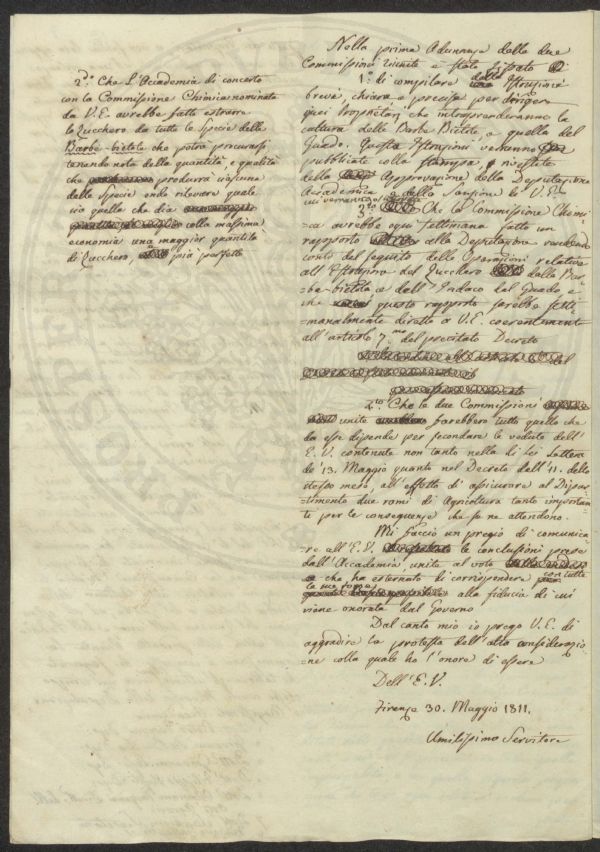 Nella prima Adunanza delle due
Commissioni riunite è stato fissato
1.° di compilare delle Istruzioni
brevi, chiare e precise per dirigere
quei Proprietari che intraprenderanno la
cultura delle Barbe Bietole e quella del
Guado. Queste Istruzioni verranno
pubblicate colla stampa, rivestite
della Approvazione della Deputazione
Accademica e della Sanzione di V.E.
cui verranno
2.° Che l'Accademia di concerto
con la Commissione Chimica nominata
da V.E. avrebbe fatto estrarre
lo Zucchero da tutte le Specie delle
Barbe-bietole che potrà procurarsi
tenendo nota della quantità, e qualità
che produrrà ciascuna
delle Specie onde rilevare quale
sia quella che dia
colla massima
economia una maggior quantità
di Zucchero, più perfetto
3.° Che la Commissione Chimi-
ca avrebbe ogni settimana fatto un
rapporto alla Deputazione rendendo
conto del seguito delle Operazioni relative
all'Estrazione del Zucchero dalle Bar-
be-bietole e dell'Indaco dal Guado e
che questo rapporto sarebbe setti-
manalmente diretto a V.E. coerentemente
all'articolo 7.mo del precitato Decreto
4.to Che le due Commissioni
unite farebbero tutto quello che
da esse dipende per secondare le vedute dell'
E.V. contenute non tanto nella di lei Lettera
de' 13. Maggio quanto nel Decreto dell'11. dello
stesso mese, all'effetto di assicurare al Dipar-
timento due rami di Agricoltura tanto importan-
ti per le conseguenze che se ne attendono.
Mi faccio un pregio di comunica-
re all'E.V. le conclusioni prese
dall'Accademia, unite al voto
che ha esternato di corrispondere con tutte
le sue forze
alla fiducia di cui
viene onorata dal Governo
Dal canto mio io prego V.E. di
aggradire la protesta dell'alta considerazio-
ne colla quale ho l'onore di essere
Dell'E.V.
Firenze 30. Maggio 1811.
Umilissimo Servitore